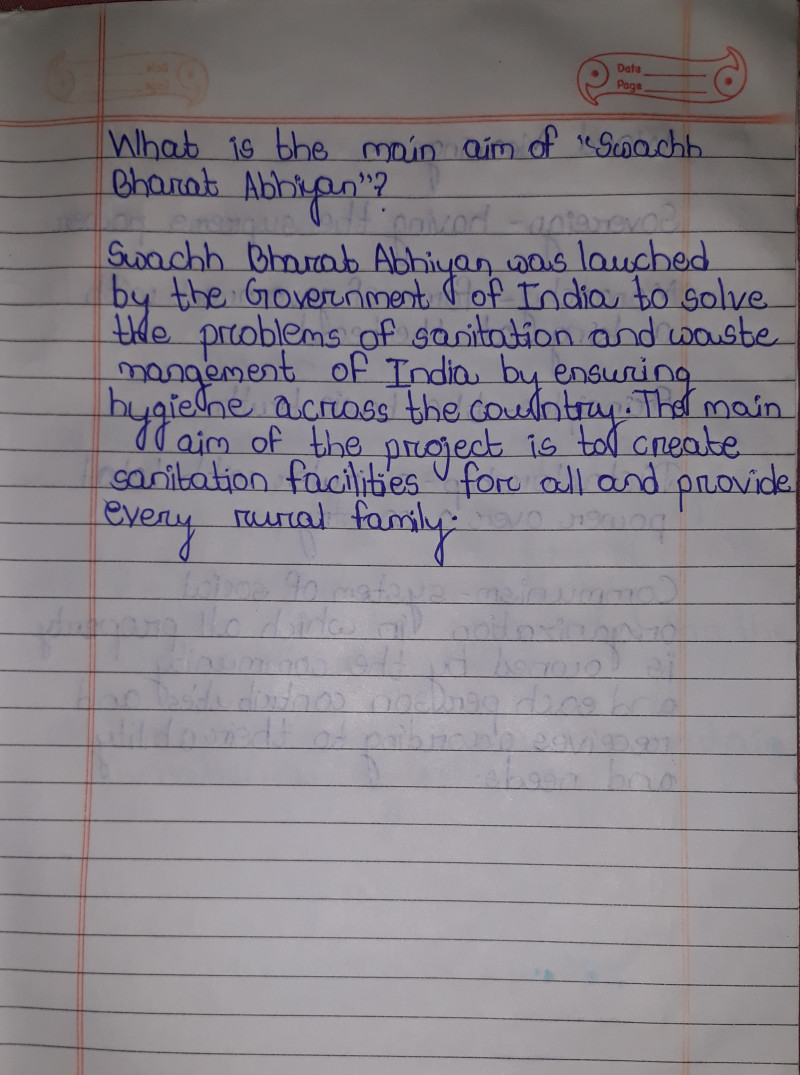 Date
Page
What is the main aim of "Swachh
Bharat Abhiyan"?
Swachh Bharat Abhiyan was lauched
by the Government of India to solve
the problems of sanitation and waste
mangement of India by ensuring
hygiene across the country. The main
aim of the project is to create
sanitation facilities for all and provide
every rural family.